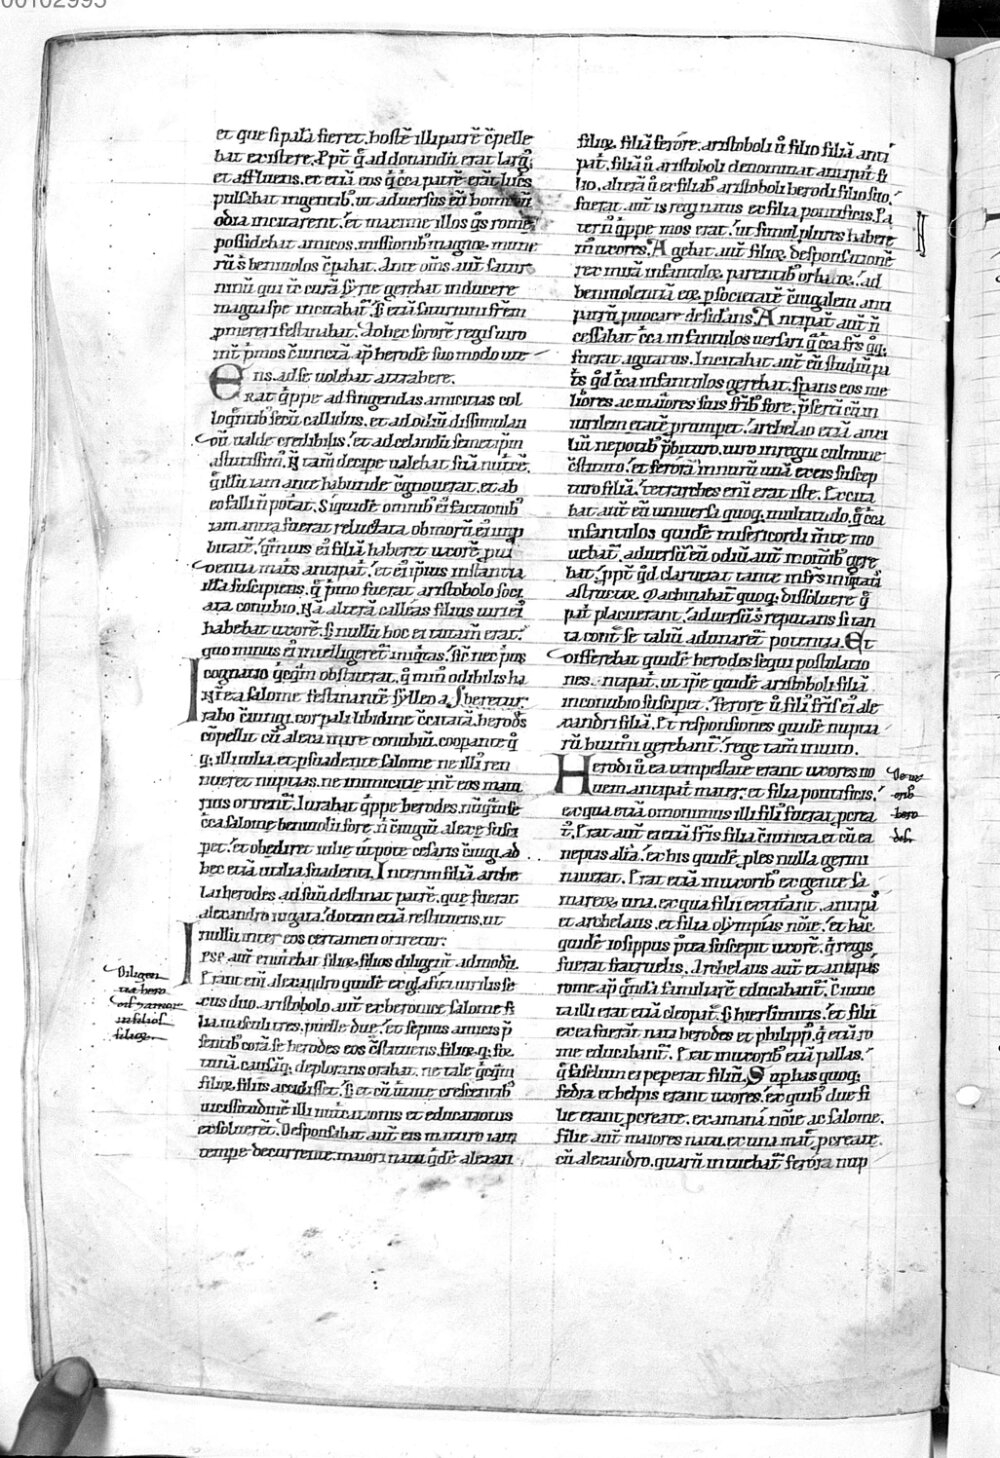 00102995
et que si palā fieret. hostē illi patrē c̄pelle
bat existere. Ppt̄ qd̄ ad donandū erat largꝰ
et affluens. et etiā eos q̄ c̄ca patrē erāt
pulsabat ingentibꝰ. ut aduersus eū
odia incitarent. et maxime illos q̄s rome
possidebat amicos. missionibꝰ magnoꝝ mune
rū s̄ beniuolos c̄pabat. Ante om̄s aūt satur
ninū qui tc̄ curā syrie gerebat inducere
magna spe incitabat. S; etiā saturnini frēm
ꝓmereri festinabat. Adhec sororē regis uiro
int̄ pͥmos c̄iunctā apͩ herodē suo modo uiu
ens. ad se uolebat attrahere.
Erat q̄ppe ad fingendas amicitias col
loq̄ntibꝰ secū callidus. et ad odiū dissimulan
dū. ualde credibilis. et ad celandū semetip̄m
astutissimꝰ. S; tam̄ decipe ualebat suā
q̄ illū iam ante habunde cognouerat. et ab
eo falli n̄ poterat. Siquidē omnibꝰ eiꝰ factionibꝰ
iam antea fuerat reluctata. ob morū eiꝰ imp
bitatē. q̄muis eiꝰ filiā haberet uxorē
auunculus antipatri. et eiꝰ ip̄ius instantia
illā suscipiens. q̄ pͥmo fuerat aristobolo soci
ata conubio. Nā alterā callias filius uiri eiꝰ
habebat uxorē. S; nullū hoc ei
quo minus eiꝰ intelligeret iniq̄tas. sic nec pͥus
cognatio q̄cq̄m obstiterat. q̄ minꝰ odibilis ha
beretur. salome festinantē sylleo a
rabo c̄iungi. corporali libidine c̄citatā. herodes
cōpellit cū alexa inire conubiū. coopante q̄
q; illi iulia. et psuadente salome ne illi ren
nueret nuptias. ne inimicitie int̄ eos mani
rius orirent̄. Iurabat q̄ppe herodes. nūq̄m se
c̄ca salome beniuolū fore. n̄ c̄iugiū alexe susci
peret. et obediret iulie utpote cesaris c̄iugi. ad
hec etiā utilia suadenti. Interim filiā arche
lai herodes ad suū destinat patrē. que fuerat
alexandro iugata. dotem etiā restituens. ut
nullū inter eos certamen oriretur.
Ipse aūt enutriebat filioꝝ filios diligent̄ admodū.
Erant eni alexandro quidē ex glafira uirilis se
xus duo. aristobolo aūt ex beronice salome fi
lia masculi tres. puelle due. et sepius amicis p̄
sentibꝰ corā se herodes eos c̄stituens. filioꝝ q; for
tunā causāq; deplorans orabat. ne tale q̄cq̄m
filioꝝ filiis accidisset. S; et cū uirtute crescentibꝰ
uicissitudinē illi nutricationis et educationis
exsoluerēt. Desponsabat aūt eis maturo iam
tempe decurrente. maiori natu qͥdē alexan
Diligen
tia hero
dis et amor
in filios
filioꝝ
filioꝝ. filiā ferore. aristoboli ū filio filiā anti
patͥ. filiā ū aristoboli denominat antipatͥ fi
lio. alterā ū ex filiabꝰ aristoboli herodi filio suo.
fuerat aūt is regi natus ex filia pontificis. Pa
ternꝰ q̄ppe mos erat. ut simul plures habere
mꝰ uxores. Agebat aūt filioꝝ desponsationē
rex miserā infantuloꝝ parentibꝰ orbatoꝝ. ad
beniuolentiā eoꝝ p societatē c̄iugalem anti
patrū puocare desiderans. Antipat̄ aūt n̄
cessabat c̄ca infantulos uersari q̄ c̄ca fr̄s q̄q;
fuerat agitatus. Incitabat aūt eū studiū pa
tͥs qd̄ c̄ca infantulos gerebat. sperans eos me
liores ac maiores suis fr̄ibꝰ fore. p̄sertī cum
uirilem etatē prumpent. archelao etiā auxi
liū nepotibꝰ p̄bituro. uiro in regni culmine
c̄stituto. et ferora in nurū unā ex eis suscep
turo filiā. tetrarches eni erat iste. Excita
bat aūt eū uniuersa quoq; multitudo. q̄ c̄ca
infantulos quidē misericordi mente mo
uebat̄. aduersū eū odiū aūt in omībꝰ gere
bat. ppt̄ qd̄ claruerat tante in fr̄s iniq̄tati
astructor. Machinabat̄ quoq; dissoluere q̄
patͥ placuerant. aduersū s̄ reputans si tan
ta contͣ se taliū adunaret̄ potentia. Et
differebat quidē herodes sequi postulatio
nes antipatͥ. ut ip̄e quidē aristoboli filiā
in conubio susciperet. ferore ū filiꝰ fr̄is eiꝰ ale
xandri filiā. Et responsiones quidē nuptia
rū huiꝰmodi gerebant̄. rege tam̄ inuito.
Herodi ū ea tempestate erant uxores no
uem. antipatͥ mater. et filia pontificis.
ex qua etiā omonimus illi filiꝰ fuerat pcrea
tꝰ. Erat aūt ei etiā fr̄is filia c̄iuncta. et cū ea
neptis alia. Ex his quidē ples nulla germi
nauerat. Erat etiā in uxoribꝰ ex gente sa
mareoꝝ una. ex qua filii extitant. antipaͣ
et archelaus. et filia olympias noīe. et hāc
quidē iosippus ptea suscepit uxorē. q̄ regis
fuerat fratruelis. Archelaus aūt et antipas
rome apͩ q̄ndā familiarē educabant̄. C̄iunc
ta illi erat etiā cleopatͣ. s; hierlimitis. et filii
ex ea fuerāt nati herodes et philippꝰ. q̄ etiā ro
me educabant̄. Erat in uxoribꝰ etiā pallas.
q̄ faselum ei peperat filiū. Sup has quoq;
fedra et helpis erant uxores. ex quibꝰ due fi
lie erant pcreate. roxana noīe ac salome.
Filie aūt maiores natu. ex una matͤ pcreate.
cū alexandro. quarū intuebat̄ ferora nup
De ux
oribꝰ
hero
dis